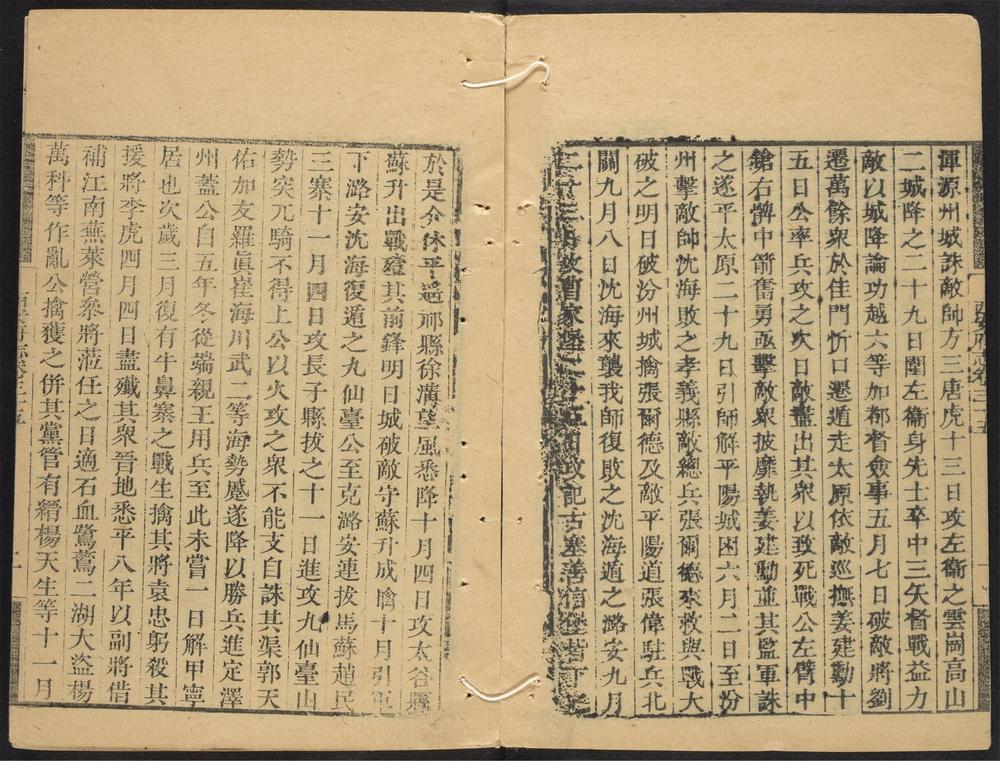 渾源州城誅敵帥方三唐虎十三日攻左衛之雲崗高山
二城降之二十九日圍左衛身先士卒中三矢督戰益力
敵以城降論功越六等加都督僉事五月七日破敵將劉
遷萬餘衆於佳門忻口遷遁走太原依敵巡撫姜建勳十
五日公率兵攻之次日敵盡出其衆以致死戰公左臂中
鎗右髀中箭奮勇亟擊敵衆披靡執姜建勳並其監軍誅
之遂平太原二十九日引師解平陽城困六月二日至汾
州擊敵帥沈海敗之孝義縣敵總兵張爾德來救與戰大
破之明日破汾州城擒張爾德及敵平陽道張偉駐兵北
關九月八日沈海來襲我師復敗之沈海遁之潞安九月
於是介休平遥祁縣徐溝望風悉降十月四日攻太谷縣
蘇升出戰殪其前鋒明日城破敵守蘇升成擒十月引軍
下潞安沈海復遁之九仙臺公至克潞安連拔馬蘇趙民
三寨十一月四日攻長子縣拔之十一日進攻九仙臺山
勢突兀騎不得上公以火攻之衆不能支自誅其渠郭天
佑加友羅眞崔海川武二等海勢蹙遂降以勝兵進定澤
州蓋公自五年冬從端親王用兵至此未嘗一日解甲寧
居也次歲三月復有牛鼻寨之戰生擒其將袁忠躬殺其
援將李虎四月四日盡殲其衆晉地悉平八年以副將借
補江南蕪萊營叅將蒞任之日適石血鷺鷥二湖大盜楊
萬科等作亂公擒獲之併其黨管有縉楊天生等十一月